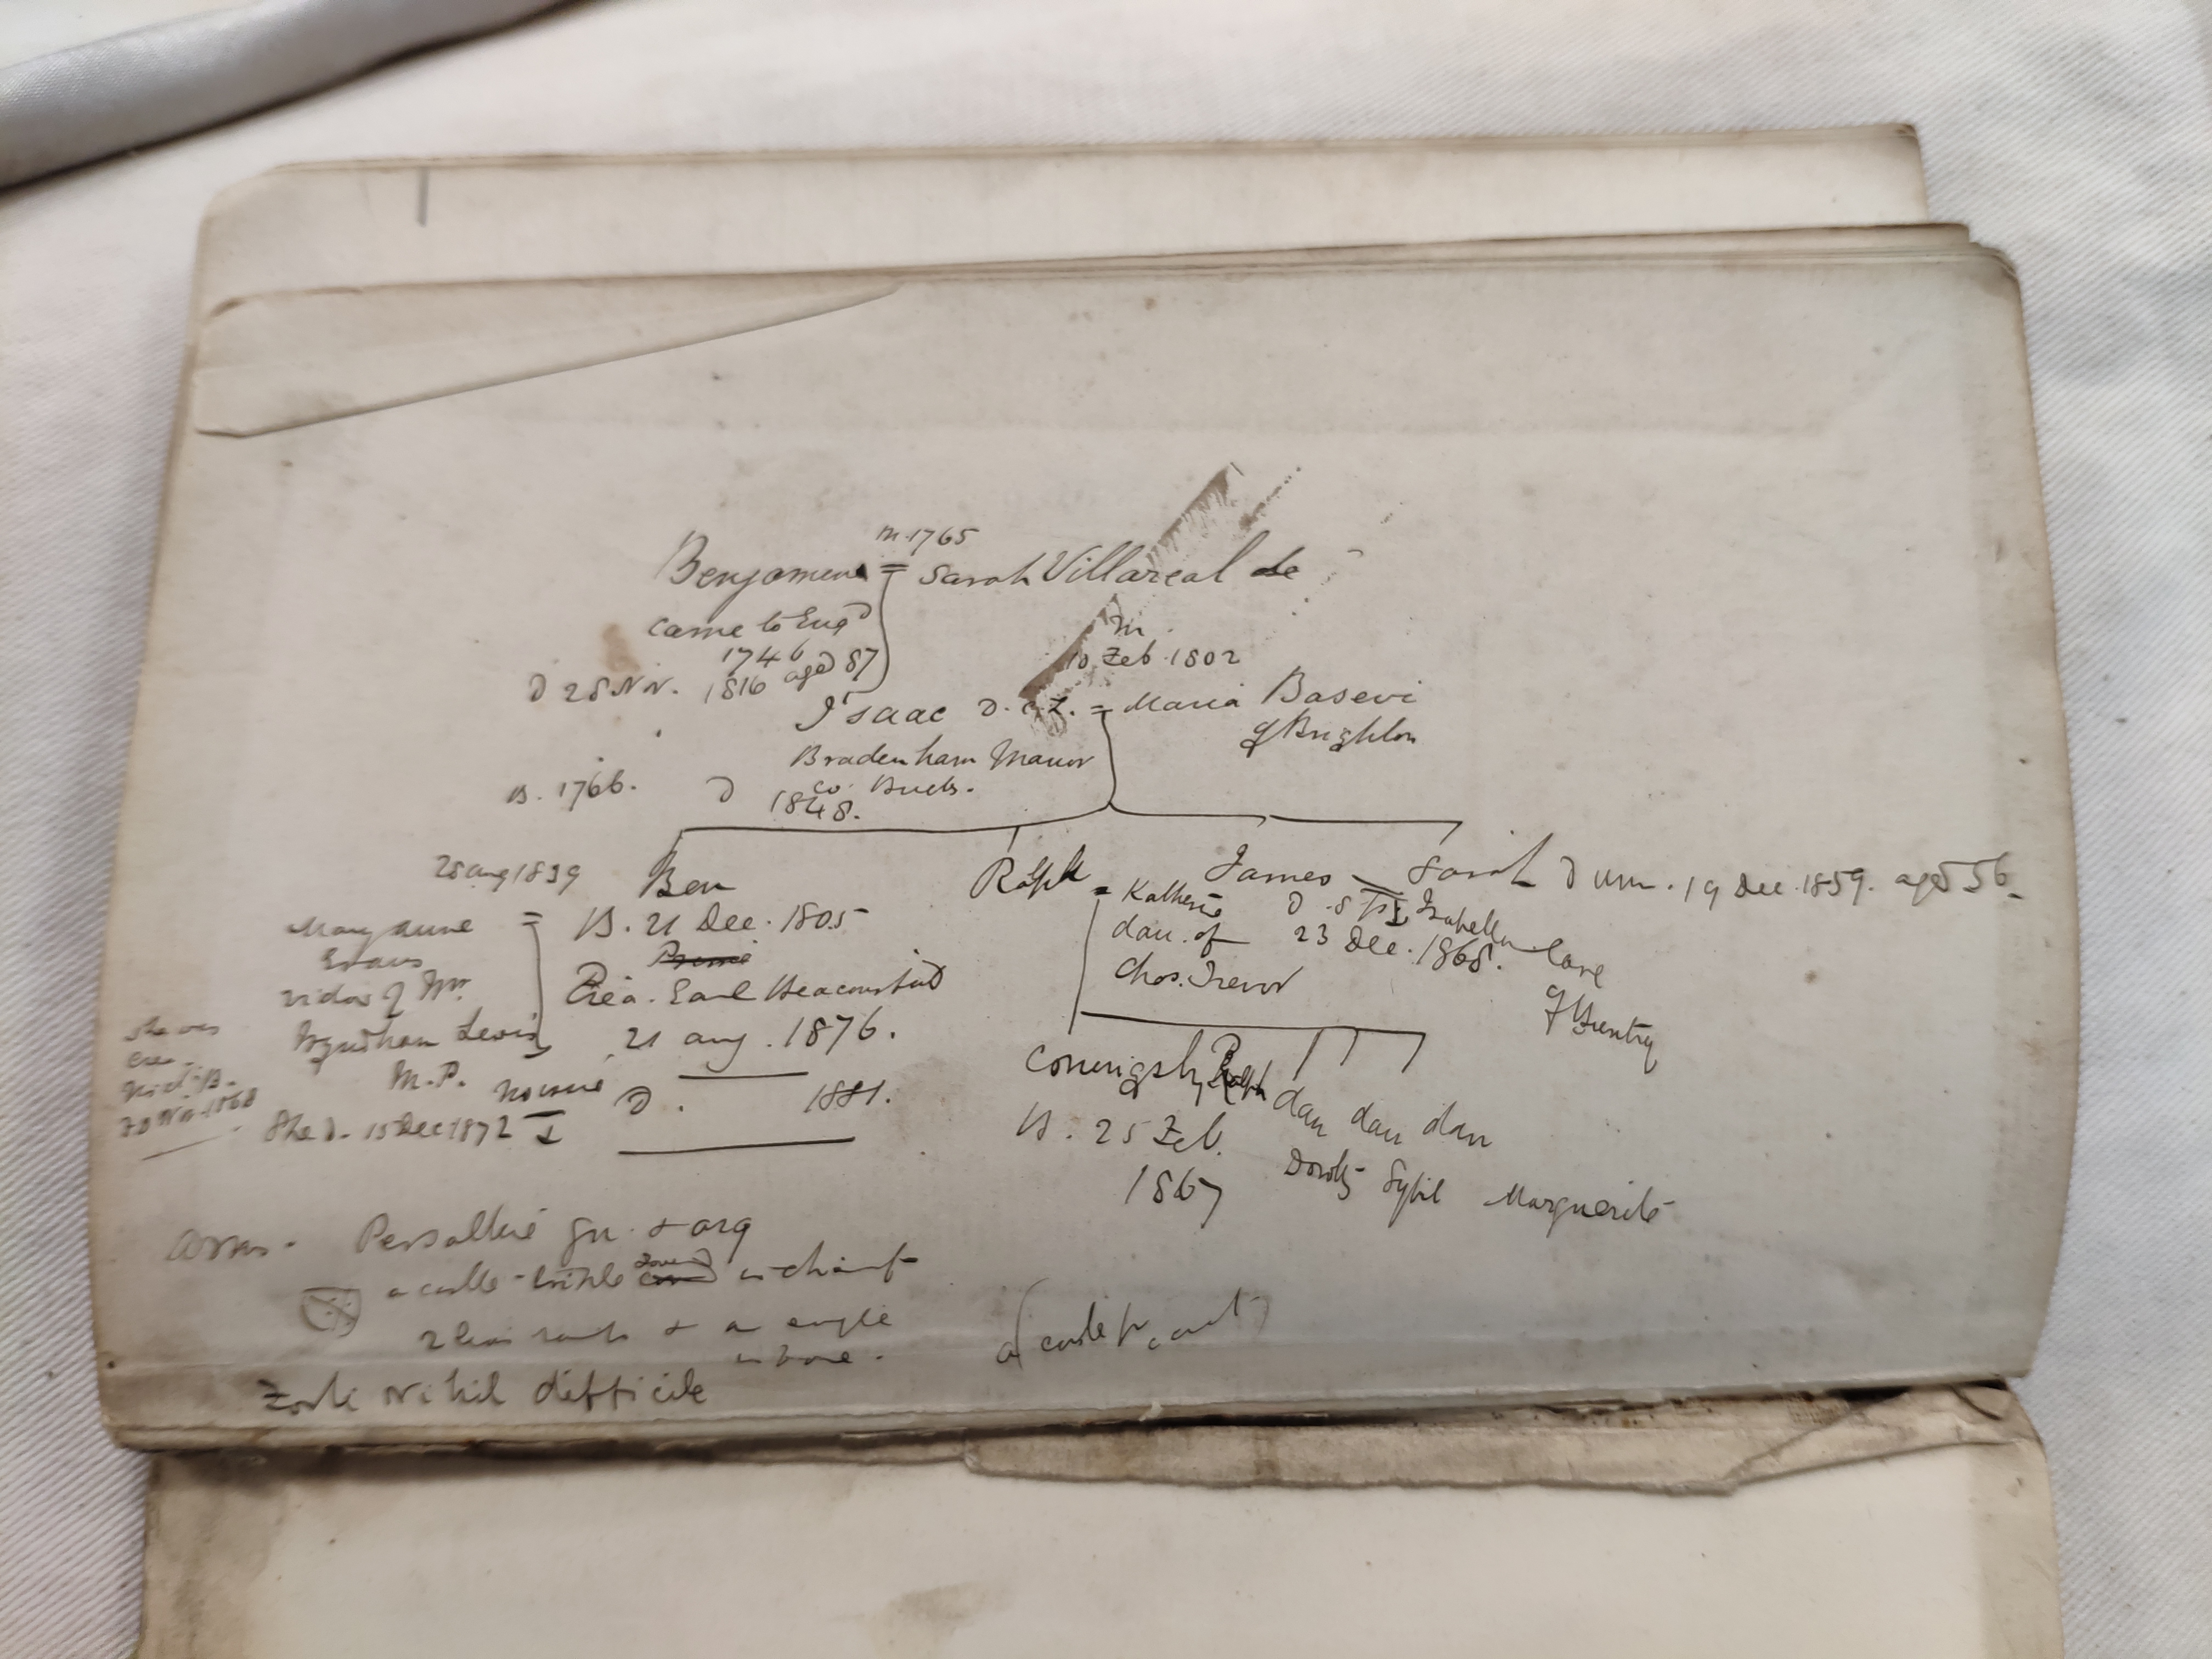 m. 1765
Benjamin = Sarah Villareal de ?
came to Engd
1746
D 28 Nov. 1816 aged 87
m.
10 Feb. 1802
Isaac D.C.L. = Maria Basevi
of Brighton
Bradenham Manor
co. Bucks.
B. 1766. D 1848.
28 Aug 1839 Ben Ralph = James = Sarah D unm. 19 Dec. 1859. aged 56
Mary Anne = B. 21 Dec. 1805
Katherine
dau. of
Chas. Trevor
D.S.P. Isabella Cave
23 Dec. 1868.
of Brentry
Evans
widow of Mr
Wyndham Lewis
M.P. no issue
Prime
Crea. Earl Beaconsfield
21 Aug. 1876.
D. 1881.
She was
cre.
Visct. B.
30 Nov. 1868
She D. 15 Dec 1872
Coningsby Ralph dau dau dau
B. 25 Feb.
1867
Doroty Sybil Marguerite
Arms. Per saltire gu. & arg
a castle triple towered in chief
2 lions ramp & an eagle
in base.
a (castle
Forti Nihil difficile